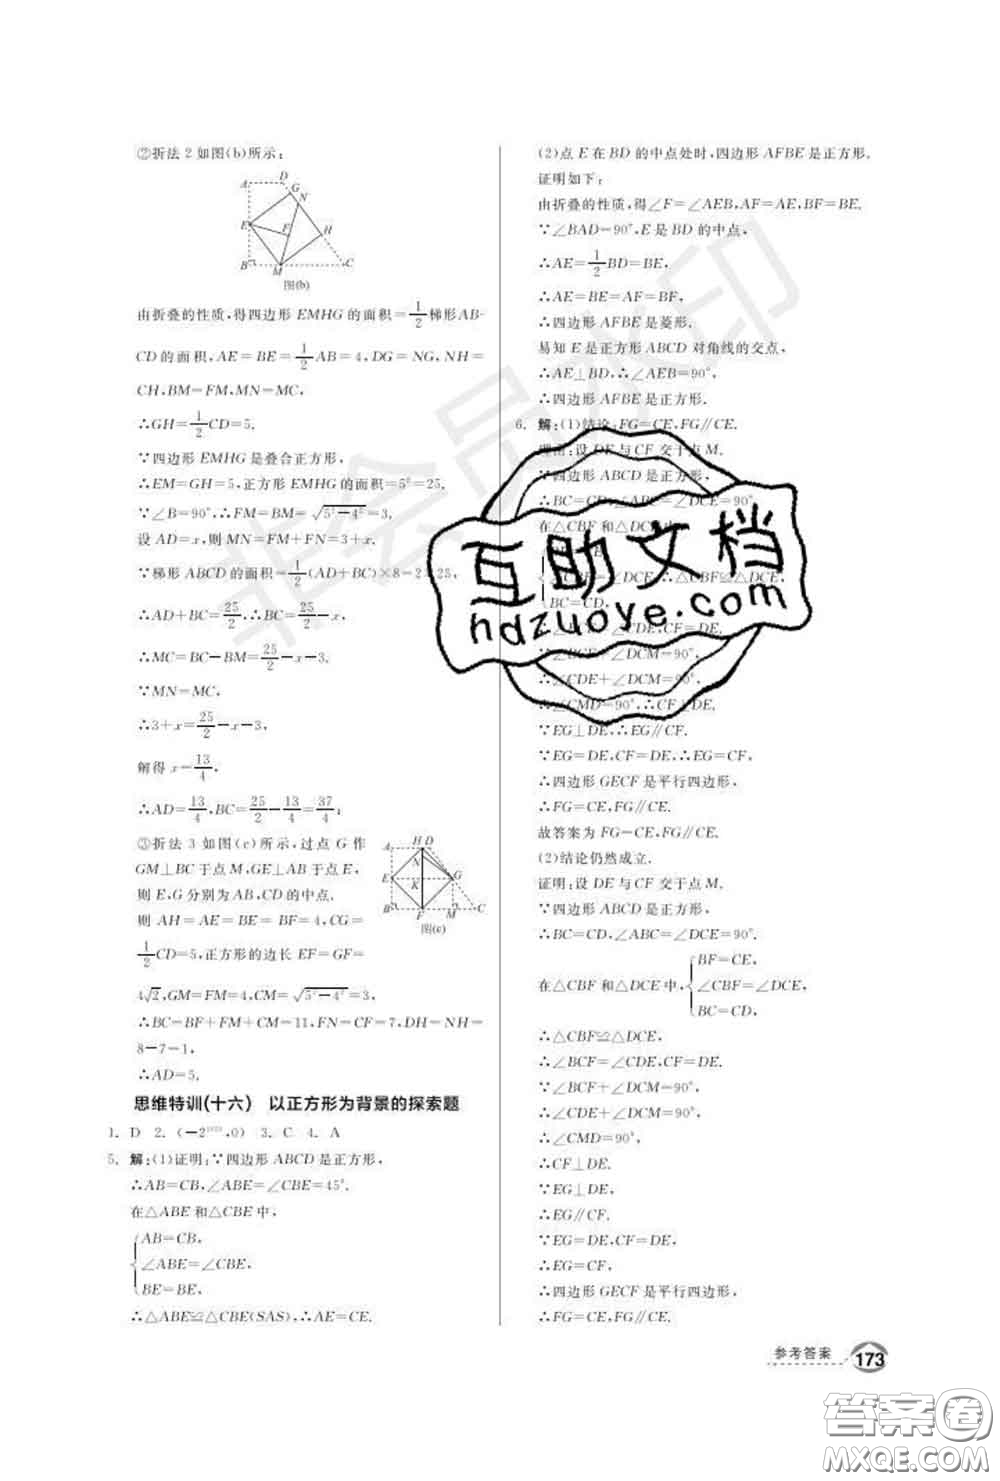 ②折法 2 如图(b)所示：
A D G N E F H B M C
图(b)
由折叠的性质，得四边形 EMHG 的面积=1/2梯形AB-
CD 的面积，AE=BE=1/2AB=4，DG=NG，NH=
CH，BM=FM，MN=MC，
∴GH=1/2CD=5.
∵四边形 EMHG 是叠合正方形，
∴EM=GH=5，正方形 EMHG 的面积=5²=25.
∵∠B=90°，∴FM=BM=√5²-4²=3.
设 AD=x，则 MN=FM+FN=3+x.
∵梯形 ABCD 的面积=1/2(AD+BC)×8=2×25，
∴AD+BC=25/2，∴BC=25/2-x，
∴MC=BC-BM=25/2-x-3.
∵MN=MC，
∴3+x=25/2-x-3，
解得 x=13/4，
∴AD=13/4，BC=25/2-13/4=37/4；
③折法 3 如图(c)所示，过点 G 作
GM⊥BC 于点 M，GE⊥AB 于点 E，
则 E，G 分别为 AB，CD 的中点.
则 AH=AE=BE=BF=4，CG=
A H D N E K G B F M C
图(c)
1/2CD=5，正方形的边长 EF=GF=
4√2，GM=FM=4，CM=√5²-4²=3，
∴BC=BF+FM+CM=11，FN=CF=7，DH=NH=
8-7=1，
∴AD=5.
思维特训(十六) 以正方形为背景的探索题
1. D 2. ( ,0) 3. C 4. A
5. 解：(1)证明：∵四边形 ABCD 是正方形，
∴AB=CB，∠ABE=∠CBE=45°.
在△ABE 和△CBE 中，
AB=CB，
∠ABE=∠CBE，
BE=BE，
∴△ABE≌△CBE(SAS)，∴AE=CE.
(2)点 E 在 BD 的中点处时，四边形 AFBE 是正方形.
证明如下：
由折叠的性质，得∠F=∠AEB，AF=AE，BF=BE.
∵∠BAD=90°，E 是 BD 的中点，
∴AE=1/2BD=BE，
∴AE=BE=AF=BF，
∴四边形 AFBE 是菱形.
易知 E 是正方形 ABCD 对角线的交点，
∴AE⊥BD，∴∠AEB=90°，
∴四边形 AFBE 是正方形.
6. 解：(1)结论：FG=CE，FG∥CE.
理由：设 DE 与 CF 交于点 M.
∵四边形 ABCD 是正方形，
∴BC=CD，∠ABC=∠DCE=90°.
在△CBF 和△DCE 中，
∠CBF=∠DCE，∴△CBF≌△DCE，
BC=CD，
∴∠BCF=∠CDE，CF=DE.
∵∠BCF+∠DCM=90°，
∴∠CDE+∠DCM=90°，
∴∠CMD=90°，∴CF⊥DE.
∵EG⊥DE，∴EG∥CF.
∵EG=DE，CF=DE，∴EG=CF，
∴四边形 GECF 是平行四边形，
∴FG=CE，FG∥CE.
故答案为 FG=CE，FG∥CE.
(2)结论仍然成立.
证明：设 DE 与 CF 交于点 M.
∵四边形 ABCD 是正方形，
∴BC=CD，∠ABC=∠DCE=90°.
在△CBF 和△DCE 中，
BF=CE，
∠CBF=∠DCE，
BC=CD，
∴△CBF≌△DCE，
∴∠BCF=∠CDE，CF=DE.
∵∠BCF+∠DCM=90°，
∴∠CDE+∠DCM=90°，
∴∠CMD=90°，
∴CF⊥DE.
∵EG⊥DE，
∴EG∥CF.
∵EG=DE，CF=DE，
∴EG=CF，
∴四边形 GECF 是平行四边形，
∴FG=CE，FG∥CE.
参考答案 173
非会员水印
互助文档
hdzuoye.com
答案卷
MXQE.COM